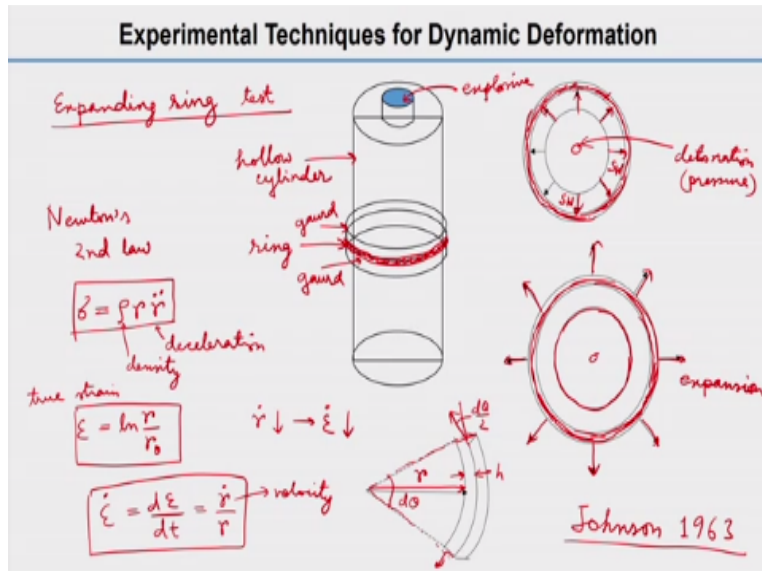 Experimental Techniques for Dynamic Deformation
Expanding ring test
explosive
hollow
cylinder
gaurd
ring
gaurd
detonation
(pressure)
SW
SW
Newton's
2nd law
σ = ρ r r̈
deceleration
density
true strain
ε = ln r/r₀
ṙ ↓ → ε̇ ↓
ε̇ = dε/dt = ṙ/r
velocity
dθ/2
r
h
dθ
expansion
Johnson 1963